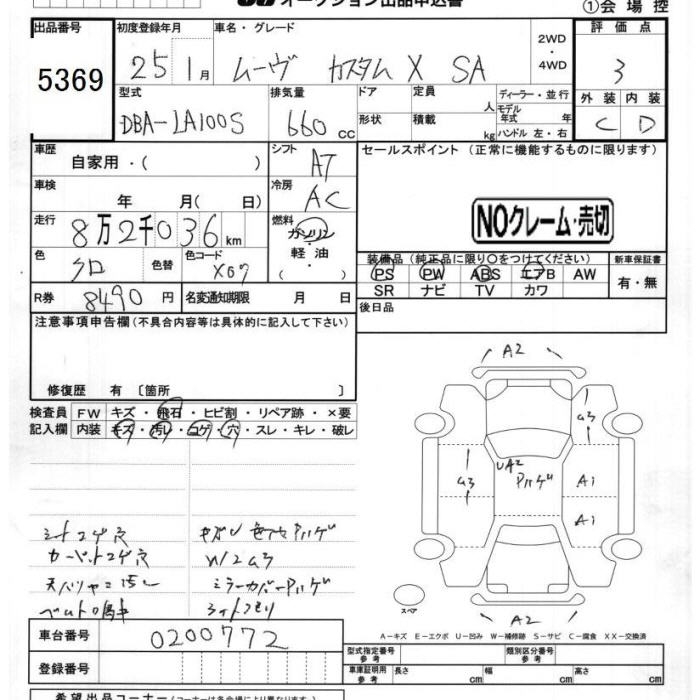 オークション出品申込書
①会場控
出品番号 初度登録年月 車名・グレード 2WD・4WD 評価点
5369 25 1月 ムーヴ カスタム X SA 3
型式 排気量 ドア 定員 人 ディーラー・並行 外装 内装
DBA-LA100S 660 cc 形状 積載 kg モデル年式 年 ハンドル 左・右 C D
車歴 自家用・( ) シフト AT セールスポイント (正常に機能するものに限ります)
車検 年 月( 日) 冷房 AC
走行 8万2千036km 燃料 ガソリン・軽油・( ) NOクレーム・売切
色 クロ 色替 色コード X07 装備品 (純正品に限り○をつけてください) 新車保証書
PS PW ABS エアB AW 有・無
SR ナビ TV カワ
R券 8490 円 名変通知期限 月 日 後日品
注意事項申告欄 (不具合内容等は具体的に記入して下さい)
修復歴 有 〔箇所 〕
検査員 FW キズ・飛石・ヒビ割・リペア跡・×要
記入欄 内装 キズ・汚レ・コゲ・穴・スレ・キレ・破レ
A2
a3
UA2
アハゲ
a3
A1
A1
シートコゲ穴
カーペットコゲ穴
W2a3
ミラーカバーアハゲ
A2
スペア
A-キズ E-エクボ U-凹み W-補修跡 S-サビ C-腐食 XX-交換済
車台番号 0200772
型式指定番号 参考 類別区分番号 参考
登録番号 車庫証明用 参考 長さ cm 幅 cm 高さ cm
希望出品コーナー (コーナーは各会場により異なります。)